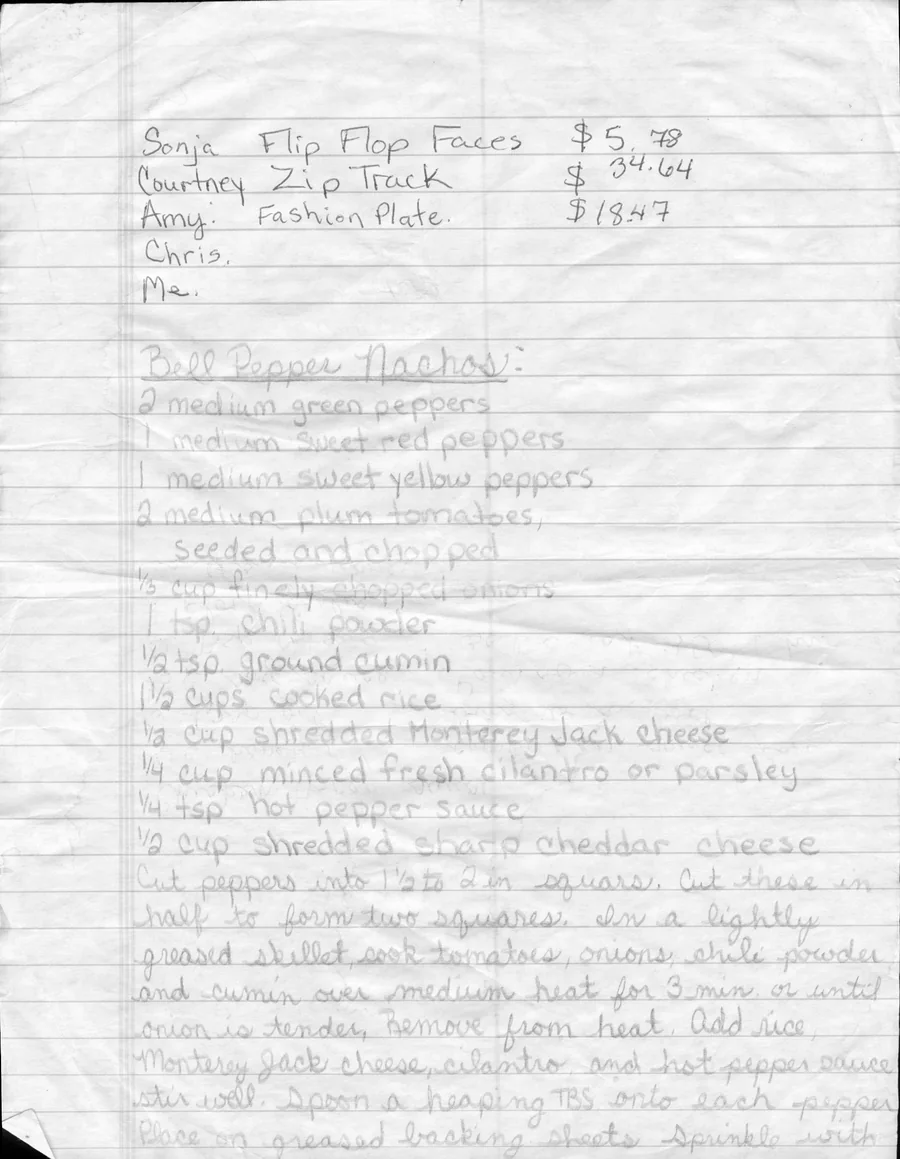 Sonja Flip Flop Faces $5.78
Courtney Zip Track $34.64
Amy: Fashion Plate. $18.47
Chris.
Me.
Bell Pepper Nachos:
2 medium green peppers
1 medium sweet red peppers
1 medium sweet yellow peppers
2 medium plum tomatoes,
seeded and chopped
1/3 cup finely chopped onions
1 tsp chili powder
1/2 tsp ground cumin
1 1/2 cups cooked rice
1/2 cup shredded Monterey Jack cheese
1/4 cup minced fresh cilantro or parsley
1/4 tsp hot pepper sauce
1/2 cup shredded sharp cheddar cheese
Cut peppers into 1 1/2 to 2 in squars. Cut these in
half to form two squares. In a lightly
greased skillet, cook tomatoes, onions, chili powder
and cumin over medium heat for 3 min. or until
onion is tender. Remove from heat. Add rice,
Monterey Jack cheese, cilantro and hot pepper sauce
stir well. Spoon a heaping TBS onto each pepper
Place on greased backing sheets Sprinkle with